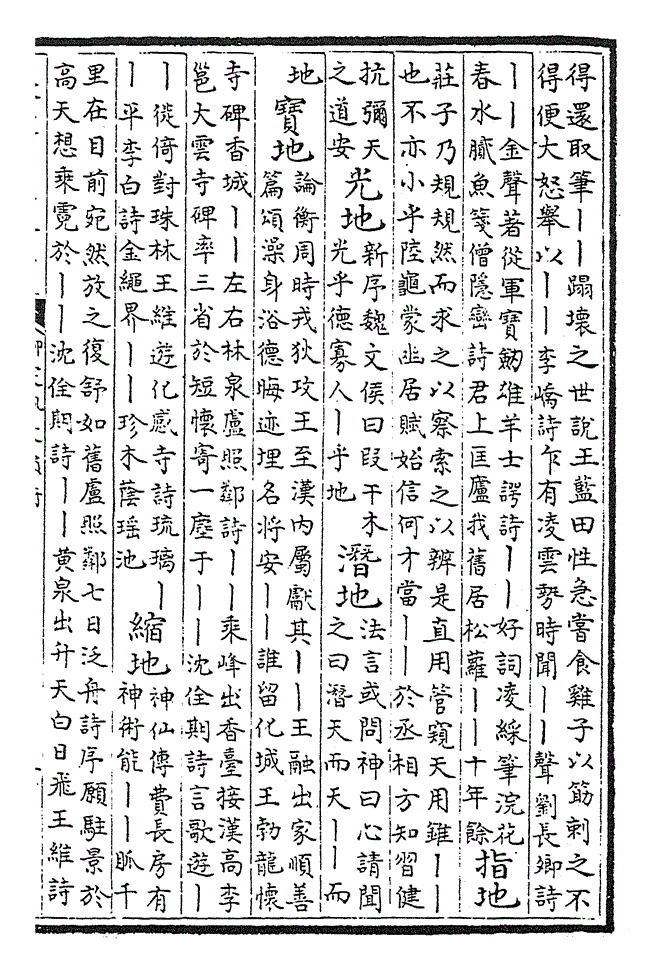 得還取筆丨丨蹋壞之世說王藍田性急嘗食雞子以筋刺之不
得便大怒舉以丨丨李嶠詩乍有凌雲勢時聞丨丨聲劉長卿詩
丨丨金聲著從軍寶劒雄羊士諤詩丨丨好詞凌綵筆浣花
春水膩魚箋僧隱巒詩君上匡廬我舊居松蘿丨丨十年餘
指地
莊子乃規規然而求之以察索之以辨是直用管窺天用錐丨丨
也不亦小乎陸龜蒙幽居賦始信何才當丨丨於丞相方知習健
抗彌天
之道安
光地
新序魏文侯曰段干木
光乎德寡人丨乎地
潛地
法言或問神曰心請聞
之曰潛天而天丨丨而
地
寶地
論衡周時戎狄攻王至漢内屬獻其丨丨王融出家順善
篇頌澡身浴德晦迹埋名將安丨丨誰留化城王勃龍懷
寺碑香城丨丨左右林泉盧照鄰詩丨丨乘峰出香臺接漢高李
邕大雲寺碑率三省於短懷寄一廛于丨丨沈佺期詩言歌遊丨
丨徙倚對珠林王維遊化感寺詩琉璃丨
丨平李白詩金繩界丨丨珍木蔭瑶池
縮地
神仙傳費長房有
神術能丨丨脈千
里在目前宛然放之復舒如舊盧照鄰七日泛舟詩序願駐景於
高天想乘霓於丨丨沈佺期詩丨丨黄泉出升天白日飛王維詩